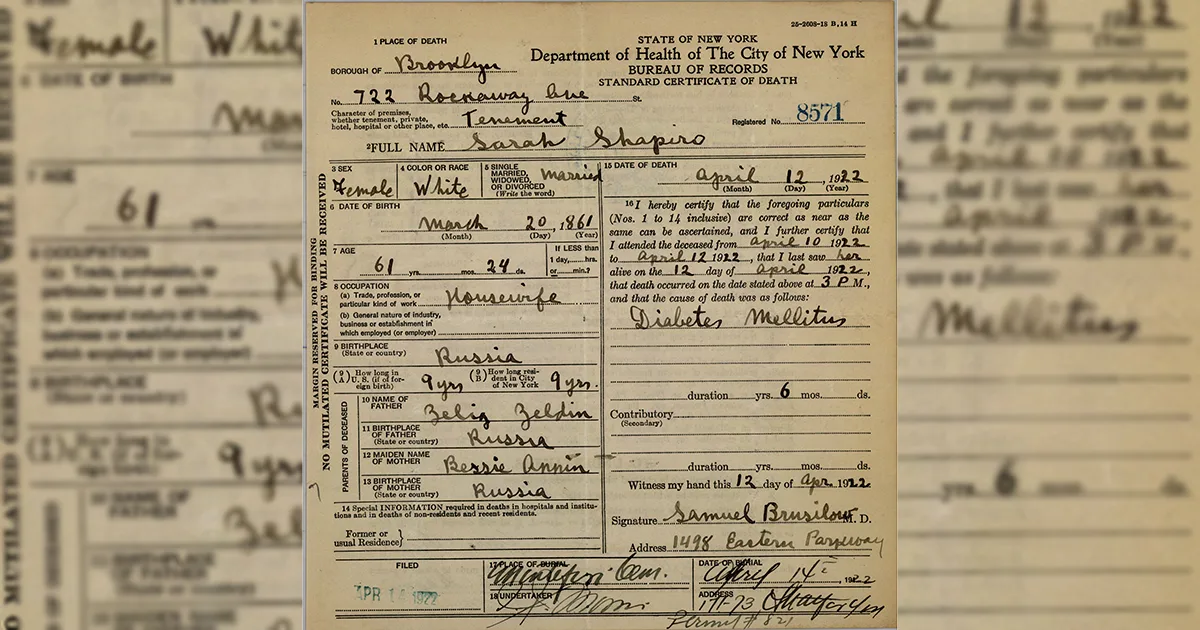 25-2608-18 B, 14 H
STATE OF NEW YORK
Department of Health of The City of New York
BUREAU OF RECORDS
STANDARD CERTIFICATE OF DEATH
1 PLACE OF DEATH
BOROUGH OF Brooklyn
No. 722 Rockaway Ave St.
Character of premises,
whether tenement, private,
hotel, hospital or other place, etc. Tenement
Registered No. 8571
2 FULL NAME Sarah Shapiro
MARGIN RESERVED FOR BINDING
NO MUTILATED CERTIFICATE WILL BE RECEIVED
3 SEX
Female
4 COLOR OR RACE
White
5 SINGLE
MARRIED,
WIDOWED,
OR DIVORCED
(Write the word)
Married
6 DATE OF BIRTH
March 20, 1861
(Month) (Day) (Year)
7 AGE
61 yrs. mos. 24 ds.
If LESS than
1 day, hrs.
or min.?
8 OCCUPATION
(a) Trade, profession, or
particular kind of work Housewife
(b) General nature of industry,
business or establishment in
which employed (or employer)
9 BIRTHPLACE
(State or country)
Russia
(9 A) How long in
U. S. (if of for-
eign birth) 9 yrs
(9 B) How long resi-
dent in City
of New York 9 yrs.
PARENTS OF DECEASED
10 NAME OF
FATHER
Zelig Zeldin
11 BIRTHPLACE
OF FATHER
(State or country)
Russia
12 MAIDEN NAME
OF MOTHER
Bessie Annin
13 BIRTHPLACE
OF MOTHER
(State or country)
Russia
14 Special INFORMATION required in deaths in hospitals and institu-
tions and in deaths of non-residents and recent residents.
Former or
usual Residence}
15 DATE OF DEATH
April 12, 1922
(Month) (Day) (Year)
16 I hereby certify that the foregoing particulars
(Nos. 1 to 14 inclusive) are correct as near as the
same can be ascertained, and I further certify that
I attended the deceased from April 10 1922
to April 12 1922, that I last saw her
alive on the 12 day of April 1922,
that death occurred on the date stated above at 3 P M.,
and that the cause of death was as follows:
Diabetes Mellitus
duration yrs. 6 mos. ds.
Contributory
(Secondary)
duration yrs. mos. ds.
Witness my hand this 12 day of Apr 1922
Signature Samuel Brusilow M. D.
Address 1498 Eastern Parkway
FILED
APR 14 1922
17 PLACE OF BURIAL
Montefiori Cem.
DATE OF BURIAL
April 14 1922
18 UNDERTAKER
ADDRESS
171-73
Permit # 821